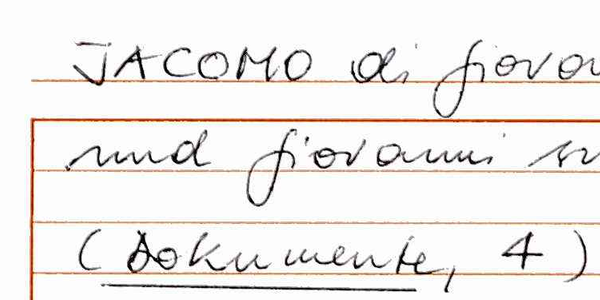 JACOMO di giova
und giovanni
(Dokumente, 4)